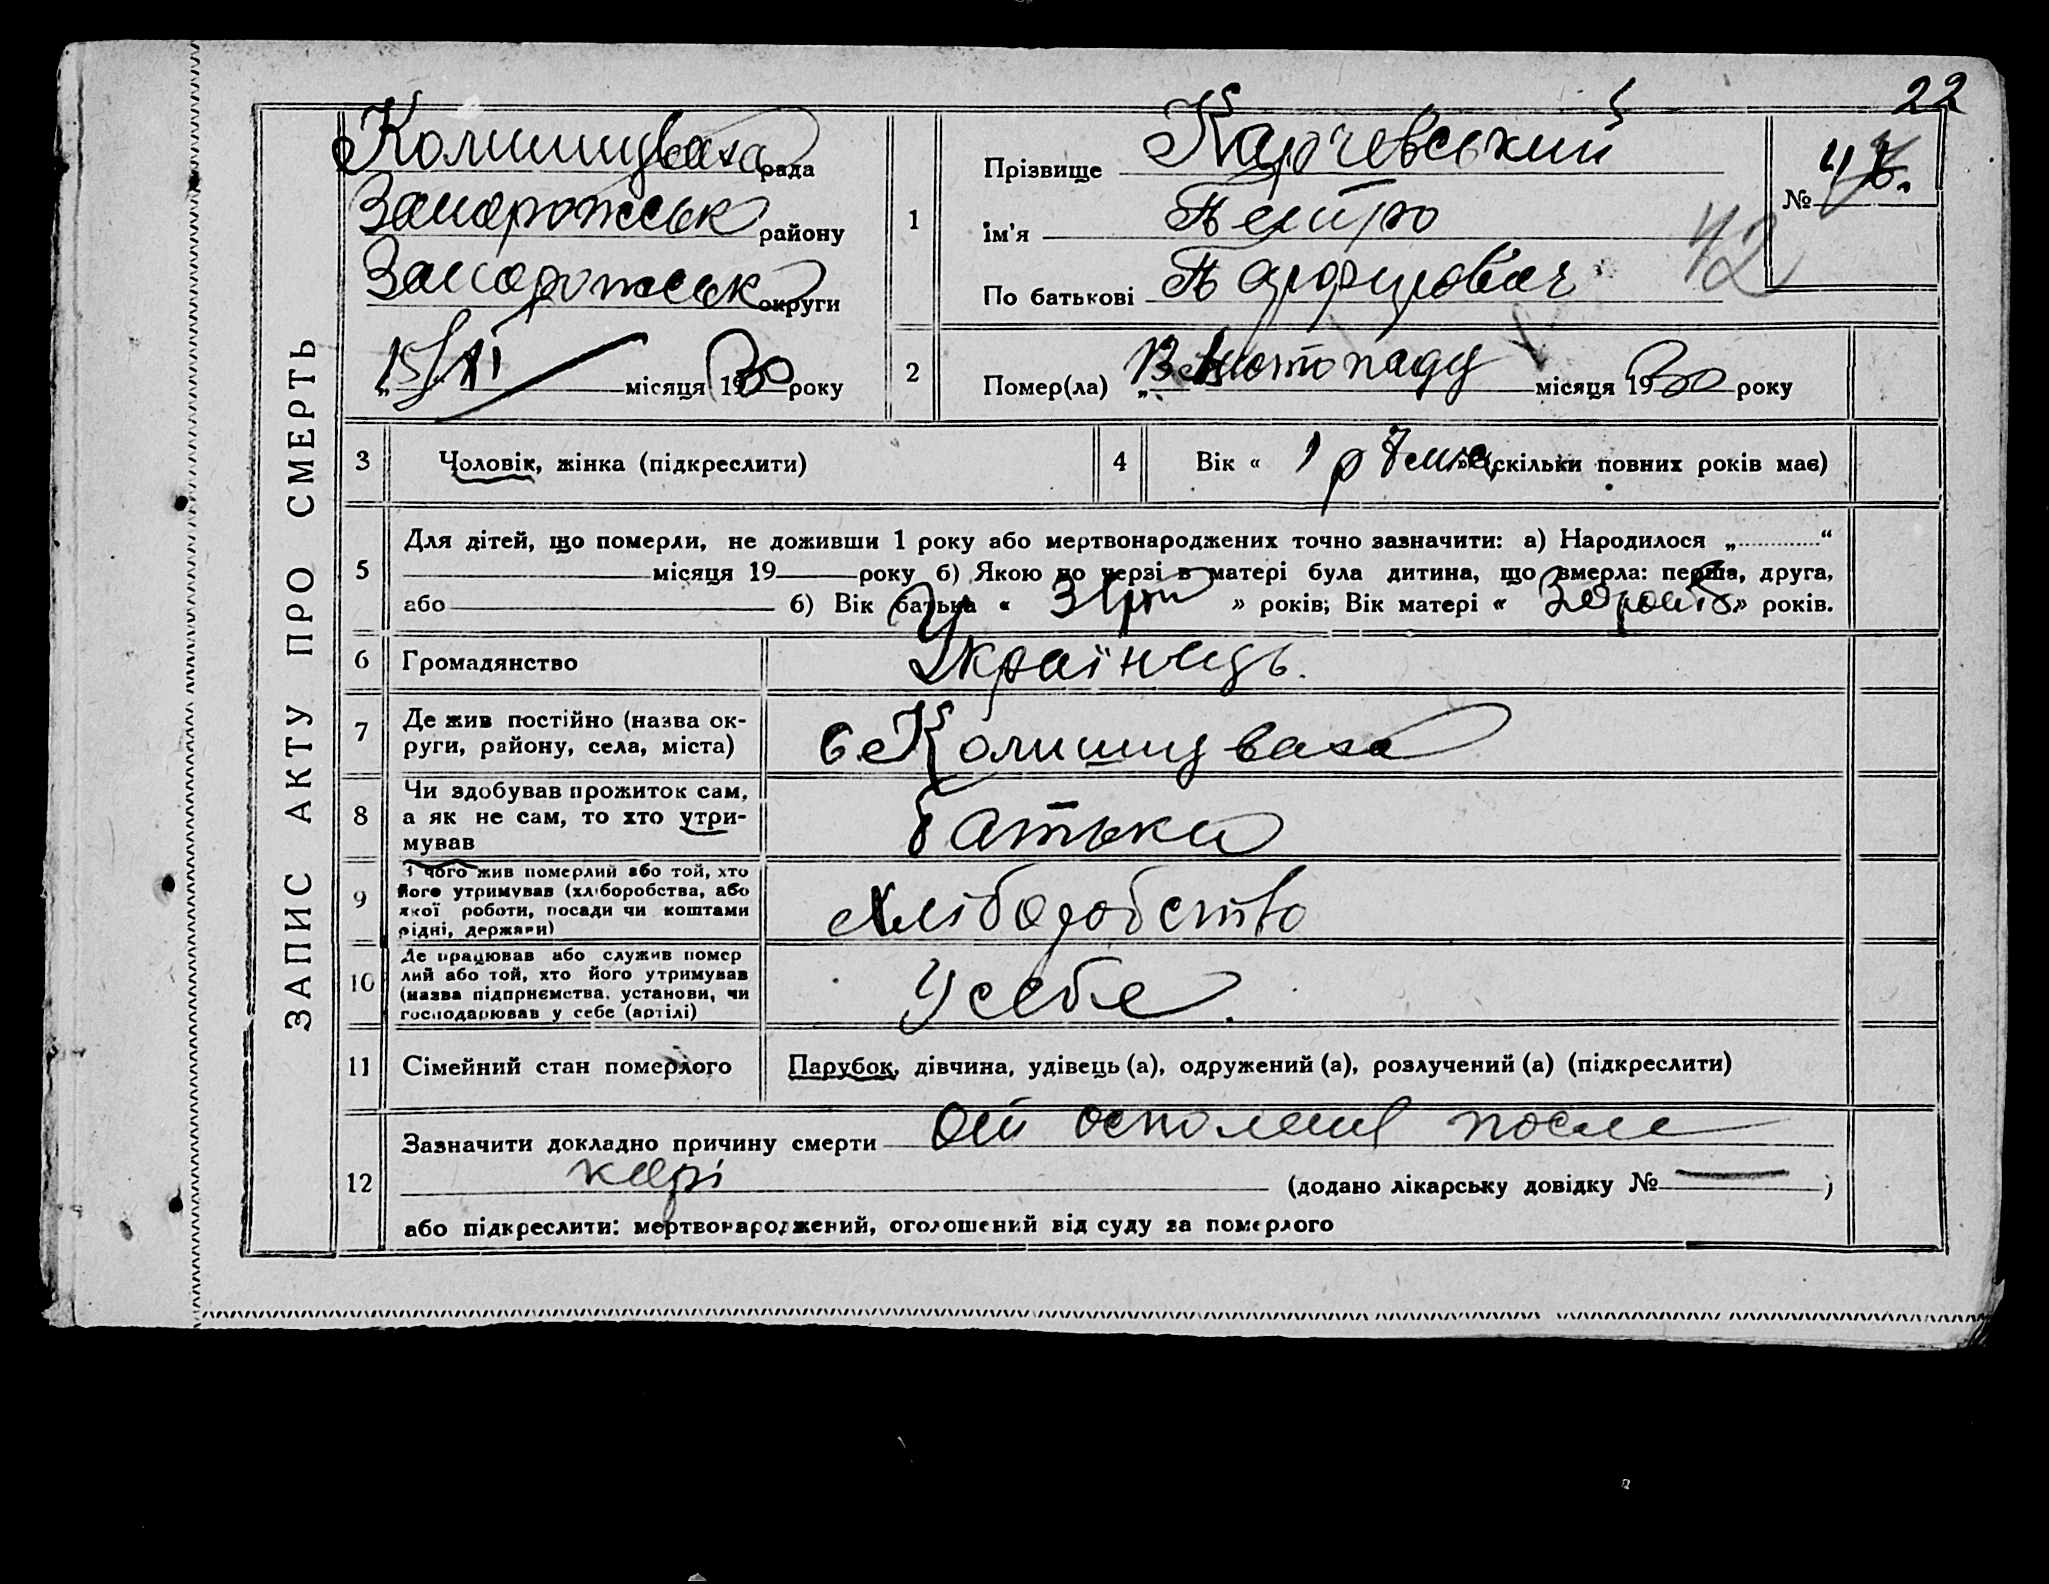 22
ЗАПИС АКТУ ПРО СМЕРТЬ
Комишуваха рада
Запорожськ району
Запорожськ округи
„15/XI місяця 1930 року
1
Прізвище Карчевський
Ім'я Петро
По батькові
№
42
2
Помер(ла) „13 листопаду місяця 1930 року
3
Чоловік, жінка (підкреслити)
4
Вік « 1 р (скільки повних років має)
5
Для дітей, що померли, не доживши 1 року або мертвонароджених точно зазначити: а) Народилося „ “
місяця 19 року б) Якою по черзі в матері була дитина, що вмерла: перша, друга,
або б) Вік батька « » років; Вік матері « » років.
6
Громадянство
Українець.
7
Де жив постійно (назва ок-
руги, району, села, міста)
с Комишуваха
8
Чи здобував прожиток сам,
а як не сам, то хто утри-
мував
батьки
9
З чого жив померлий або той, хто
його утримував (хліборобства, або
якої роботи, посади чи коштами
рідні, держави)
Хліборобство
10
Де працював або служив помер
лий або той, хто його утримував
(назва підприємства, установи, чи
господарював у себе (артілі)
У себе.
11
Сімейний стан померлого
Парубок, дівчина, удівець (а), одружений (а), розлучений (а) (підкреслити)
12
Зазначити докладно причину смерти От после
корі (додано лікарську довідку № — )
або підкреслити: мертвонароджений, оголошений від суду за померлого